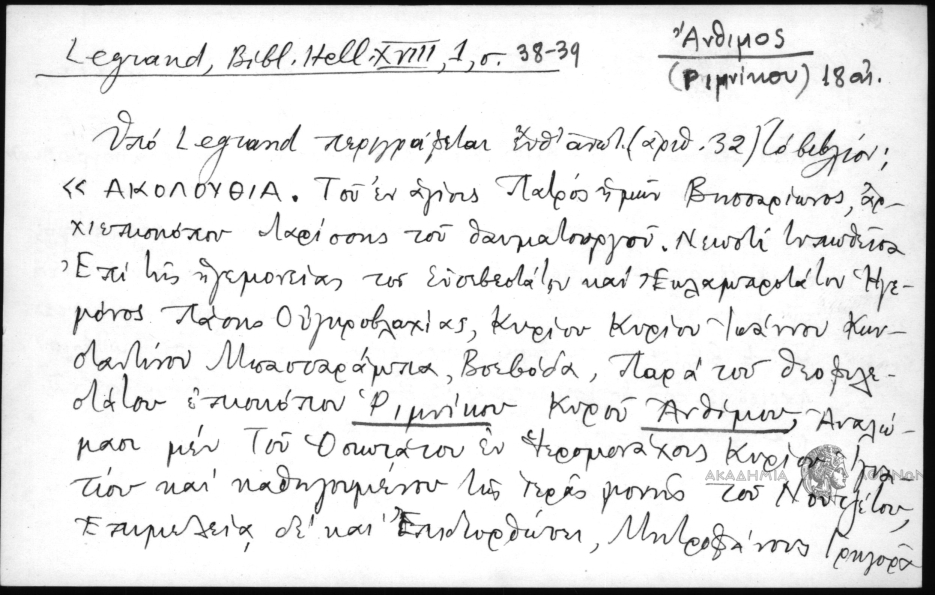 Legrand, Bibl. Hell. XVIII, 1, σ. 38-39
Ἄνθιμος
(Ριμνίκου) 18 αἰ.
Ὑπό Legrand περιγράφεται ἐνθ' ἀνωτ. (ἀριθ. 32) τό βιβλίον;
« ΑΚΟΛΟΥΘΙΑ. Τοῦ ἐν ἁγίοις Πατρός ἡμῶν Βησσαρίωνος, ἀρ-
χιεπισκόπου Λαρίσσης τοῦ θαυματουργοῦ. Νεωστί τυπωθεῖσα
Ἐπί τῆς ἡγεμονείας του εὐσεβεστάτου καί Ἐκλαμπροτάτου Ἡγε-
μόνος Πάσης Οὑγγροβλαχίας, Κυρίου Κυρίου Ἰωάννου Κων-
σταντίνου Μπασσαράμπα, Βοεβόδα, Παρά του θεοφιλε-
στάτου ἐπισκόπου Ῥιμνίκου Κυροῦ Ἀνθίμου, Ἀναλώ-
μασι μέν Τοῦ Ὁσιωτάτου ἐν Ἱερομονάχοις Κυρίου Ἰγνα-
τίου καί καθηγουμένου τῆς ἱερᾶς μονῆς τοῦ Νουτζέτου,
Ἐπιμελείᾳ δέ καί Ἐπιδιορθώσει, Μητροφάνους Γρηγορᾶ
ΑΚΑΔΗΜΙΑ ΑΘΗΝΩΝ